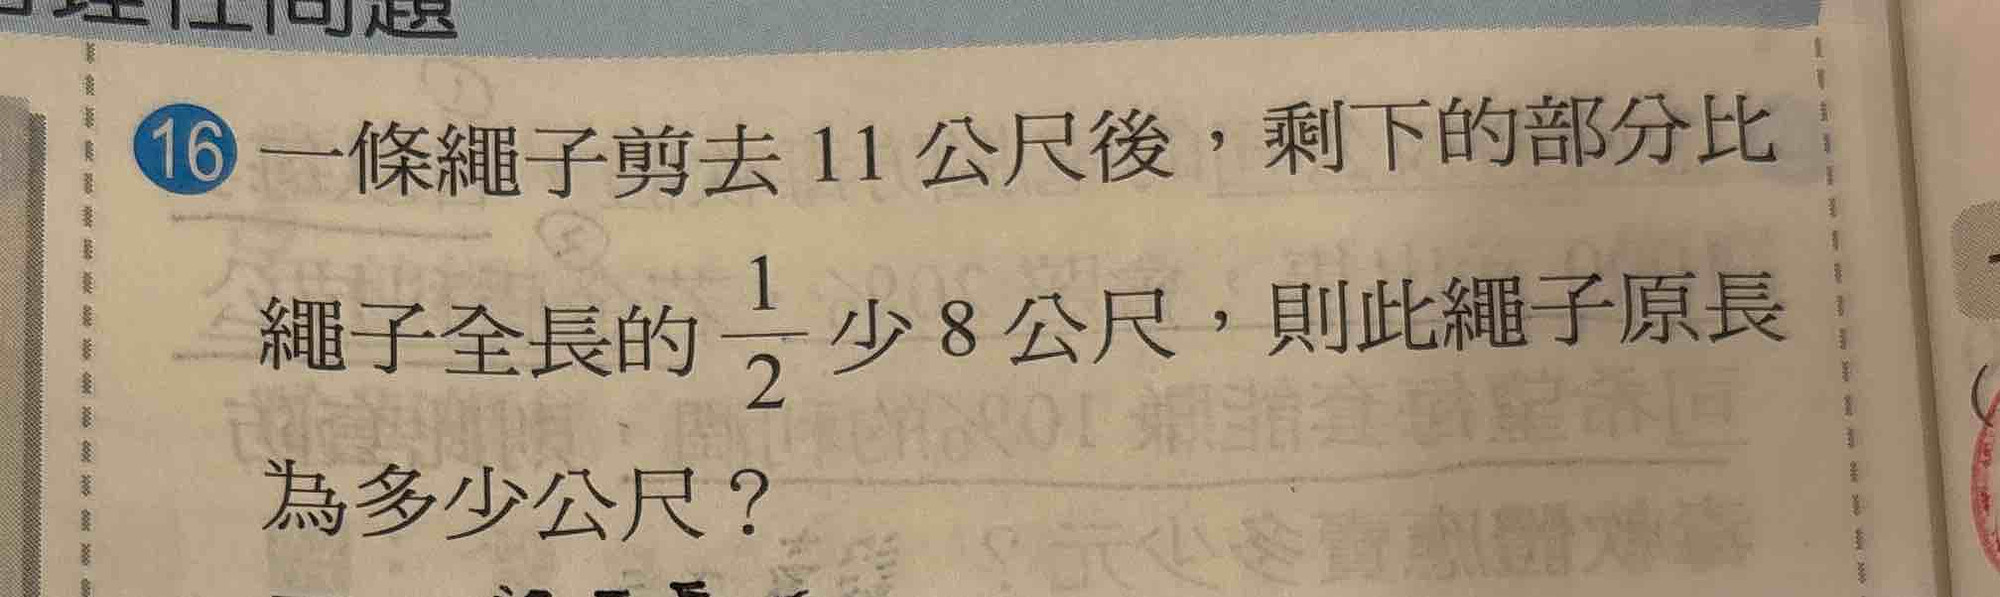 性問題
16 一條繩子剪去 11 公尺後，剩下的部分比
繩子全長的 1/2 少 8 公尺，則此繩子原長
為多少公尺？